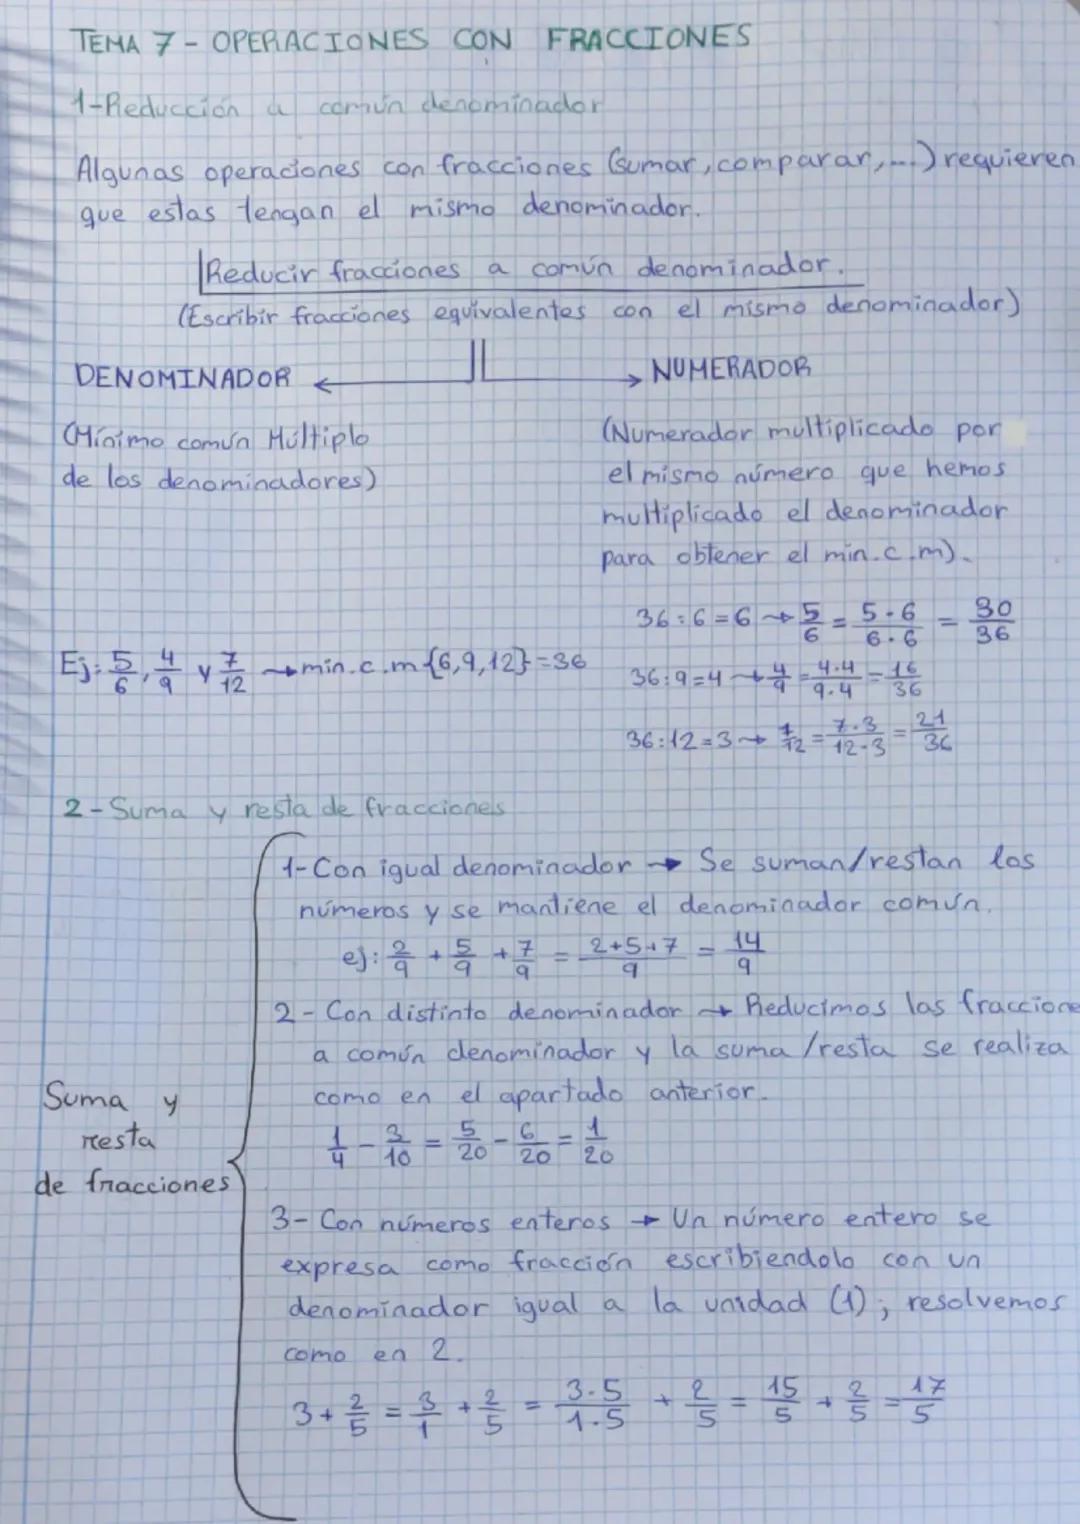 TEMA 7 - OPERACIONES CON FRACCIONES
1-Reducción a común denominador
Algunas operaciones con fracciones (sumar, comparar,...) requieren
que estas tengan el mismo denominador.
Reducir fracciones a común denominador.
(Escribir fracciones equivalentes con el mismo denominador)
DENOMINADOR ← → NUMERADOR
(Mínimo común Múltiplo
de los denominadores)
(Numerador multiplicado por
el mismo número que hemos
multiplicado el denominador
para obtener el min.c.m).
Ej: 5/6, 4/9 y 7/12 → min.c.m {6,9,12} = 36
36:6=6 → 5/6 = 5·6/6·6 = 30/36
36:9=4 → 4/9 = 4·4/9·4 = 16/36
36:12=3 → 7/12 = 7·3/12·3 = 21/36
2-Suma y resta de fracciones
Suma y
resta
de fracciones
1-Con igual denominador → Se suman/restan los
números y se mantiene el denominador común.
ej: 2/9 + 5/9 + 7/9 = 2+5+7/9 = 14/9
2- Con distinto denominador → Reducimos las fraccione
a común denominador y la suma/resta se realiza
como en el apartado anterior.
1/4 - 3/10 = 5/20 - 6/20 = 1/20
3- Con números enteros → Un número entero se
expresa como fracción escribiendolo con un
denominador igual a la unidad (1); resolvemos
como en 2.
3 + 2/5 = 3/1 + 2/5 = 3·5/1·5 + 2/5 = 15/5 + 2/5 = 17/5